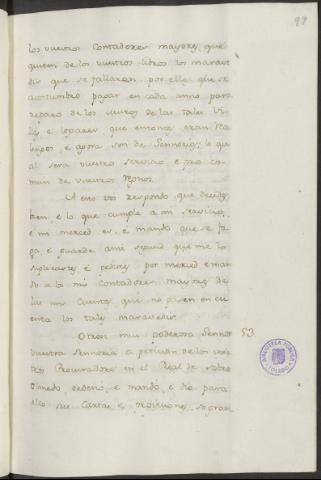 98
los vuestros Contadores mayores, que
quiten de los vuestros libros los marave-
dis que se fallaran por ellos que se
acostumbró pagar en cada anno para
reparo de los muros de las tales Vi-
llas e logares, que entonces eran Rea-
lengos, e agora son de Sennorios, lo qu
al será vuestro servicio e pro co-
mun de vuestros Regnos.
A esto vos respondo que decides
bien, e lo que cumple a mi servicio,
e mi merced es, e mando que se fa-
ga, e guarde ansi segund que me lo
suplicastes, e pedistes por merced e man-
do a los mis Contadores mayores de
las mis Cuentas que no pasen en cu
enta los tales maravedis.
Otrosi mui poderoso Sennor 53.
vuestra Sennoria a peticion de los vues-
tros Procuradores en el Real de sobre
Olmedo ordenó e mandó, e dio para
ello sus Cartas e provisiones, so gran
BIBLIOTECA PUBLICA
TOLEDO